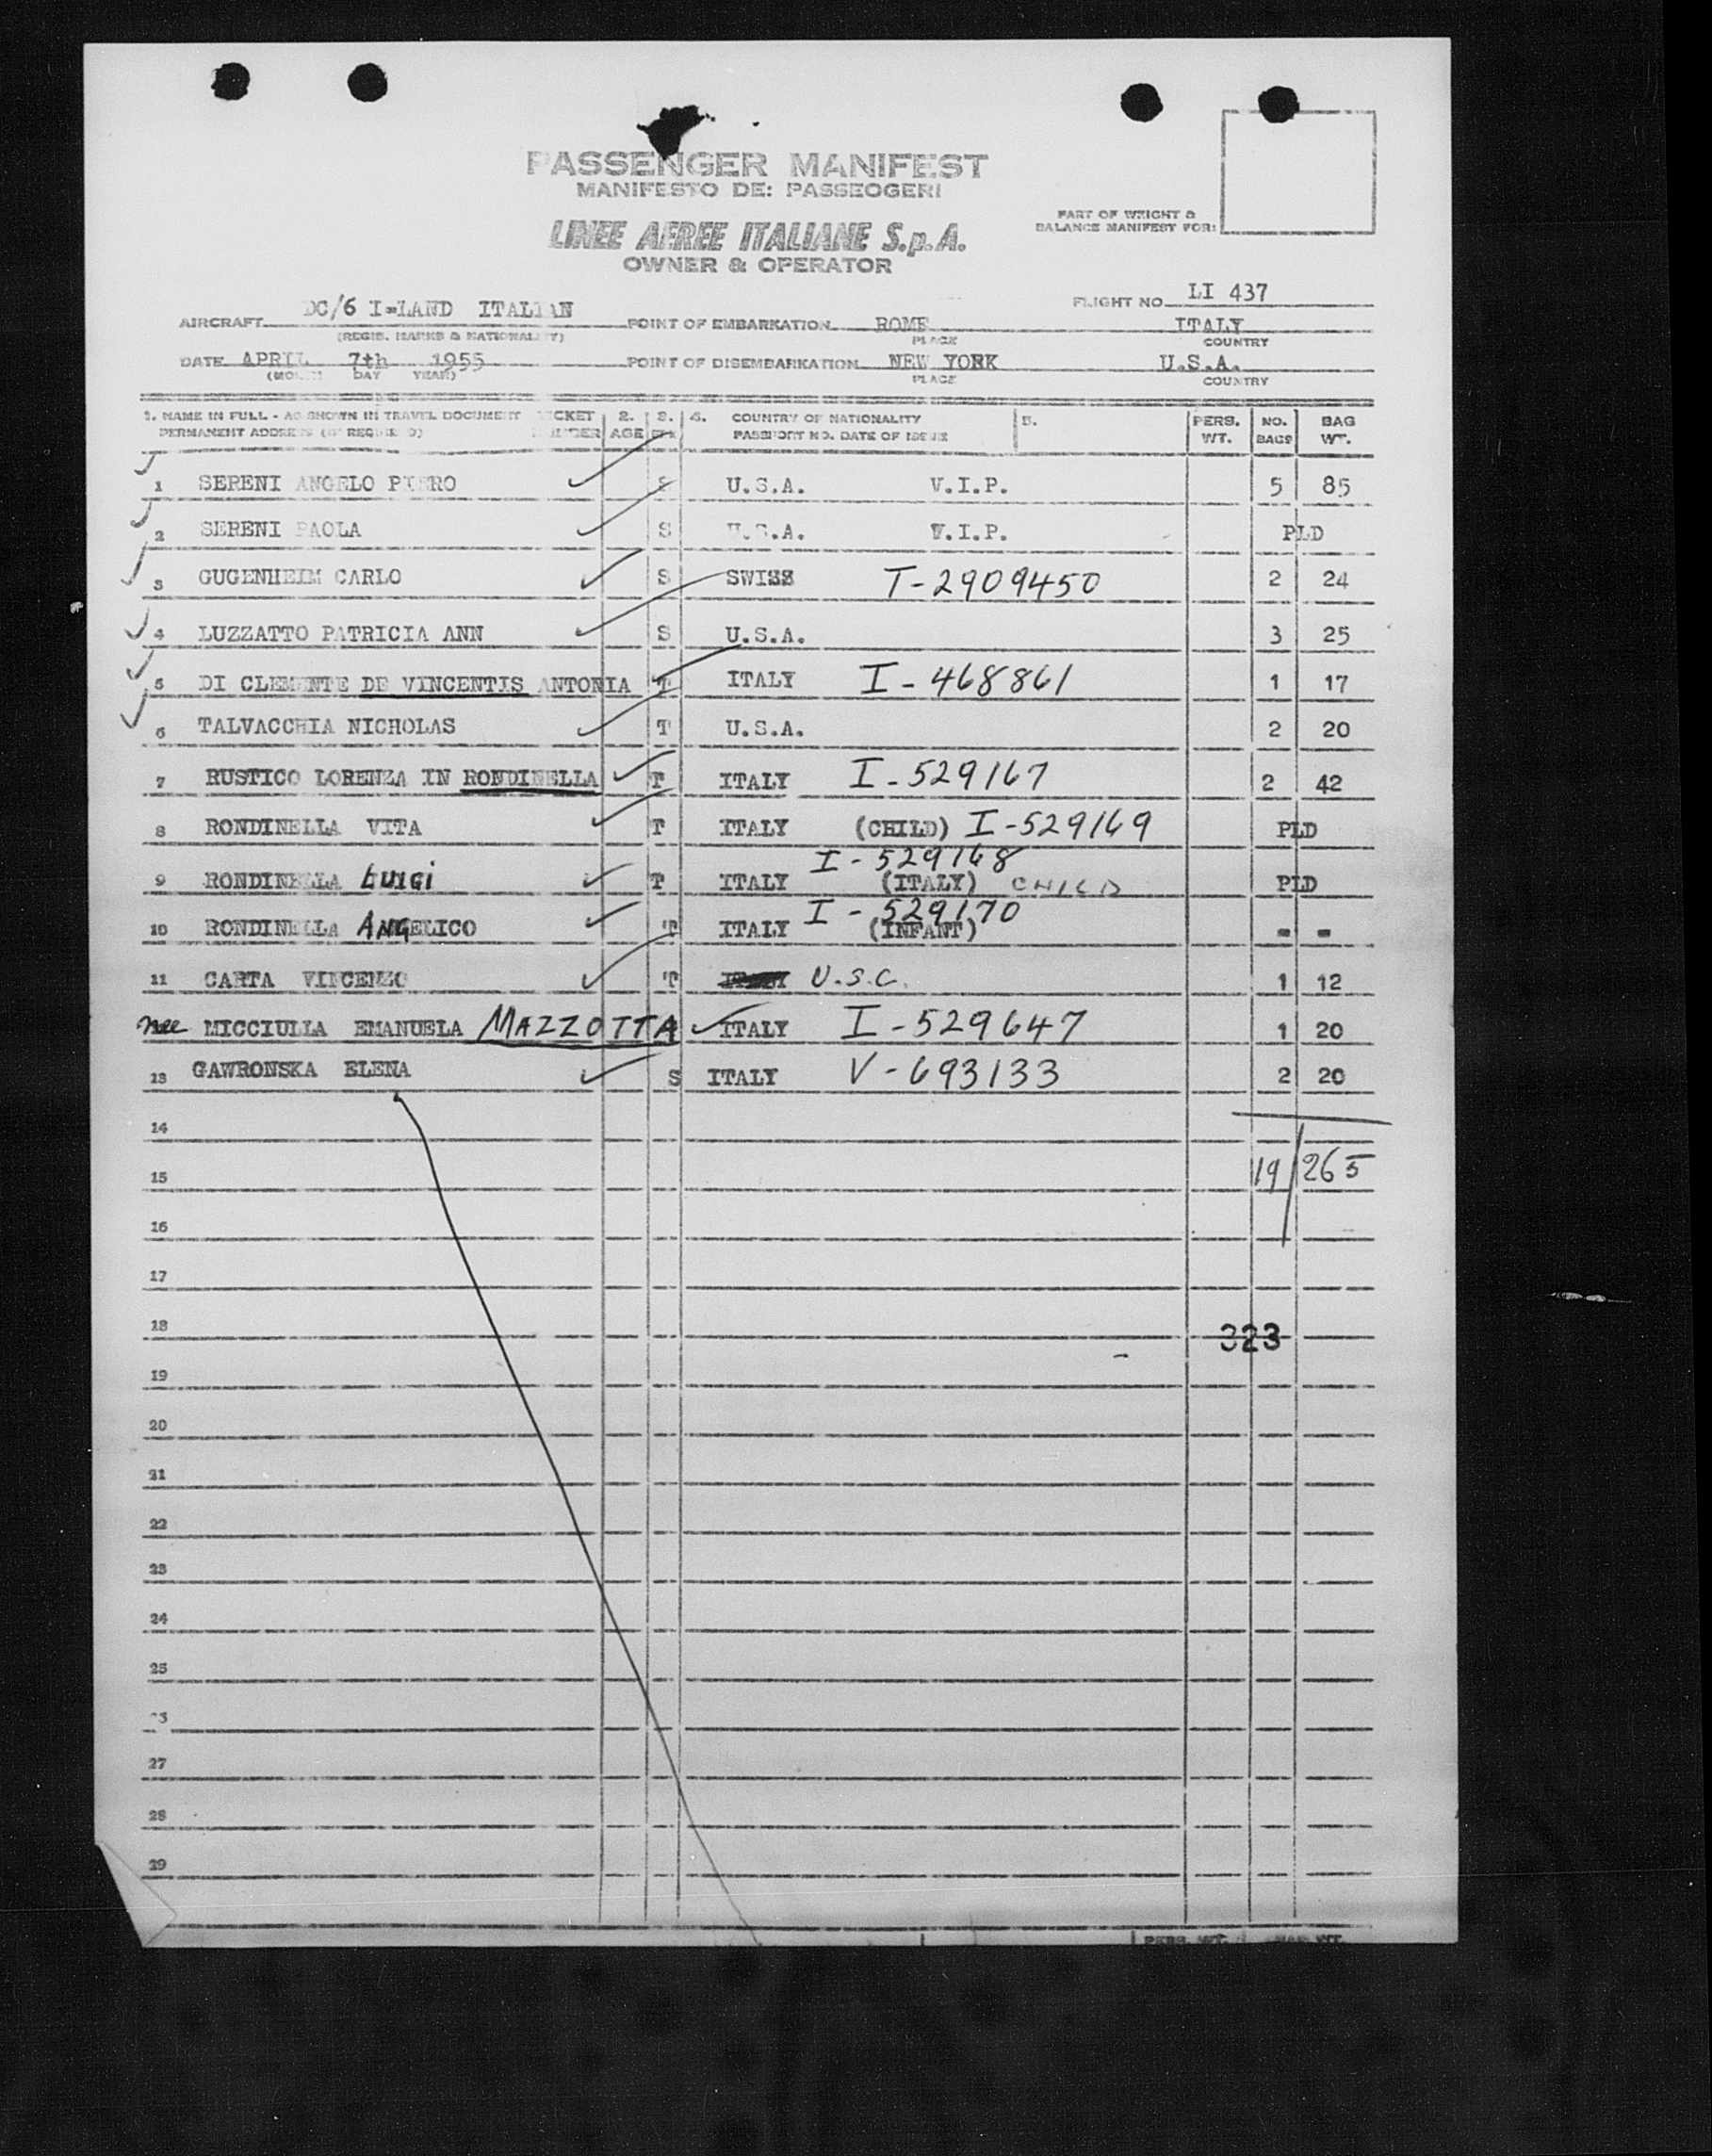 PASSENGER MANIFEST
MANIFESTO DE: PASSEOGERI
LINEE AEREE ITALIANE S.p.A.
OWNER & OPERATOR
PART OF WEIGHT &
BALANCE MANIFEST FOR:
AIRCRAFT DC/6 I-LAND ITALIAN POINT OF EMBARKATION ROME ITALY FLIGHT NO. LI 437
(REGIS. MARKS & NATIONALITY) PLACE COUNTRY
DATE APRIL 7th 1955 POINT OF DISEMBARKATION NEW YORK U.S.A.
(MONTH DAY YEAR) PLACE COUNTRY
1. NAME IN FULL - AS SHOWN IN TRAVEL DOCUMENT TICKET 2. 3. 4. COUNTRY OF NATIONALITY 5. PERS. NO. BAG
PERMANENT ADDRESS (IF REQUIRED) NUMBER AGE SEX PASSPORT NO. DATE OF ISSUE WT. BAGS WT.
1 SERENI ANGELO PIERO S U.S.A. V.I.P. 5 85
2 SERENI PAOLA S U.S.A. V.I.P. PLD
3 GUGENHEIM CARLO S SWISS T-2909450 2 24
4 LUZZATTO PATRICIA ANN S U.S.A. 3 25
5 DI CLEMENTE DE VINCENTIS ANTONIA T ITALY I-468861 1 17
6 TALVACCHIA NICHOLAS T U.S.A. 2 20
7 RUSTICO LORENZA IN RONDINELLA T ITALY I-529167 2 42
8 RONDINELLA VITA T ITALY (CHILD) I-529169 PLD
I-529168
9 RONDINELLA LUIGI T ITALY (ITALY) CHILD PLD
I-529170
10 RONDINELLA ANGELICO T ITALY (INFANT) - -
11 CARTA VINCENZO T ITALY U.S.C. 1 12
nee MICCIULLA EMANUELA MAZZOTTA ITALY I-529647 1 20
13 GAWRONSKA ELENA S ITALY V-693133 2 20
14
15 19 265
16
17
18 323
19
20
21
22
23
24
25
27
28
29
PERS. WT. BAG WT.